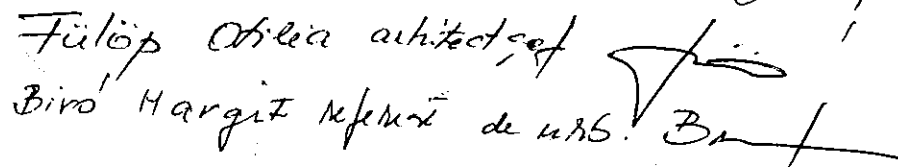 Fülöp Otilia arhitect șef
Biró Margit referent de urb.